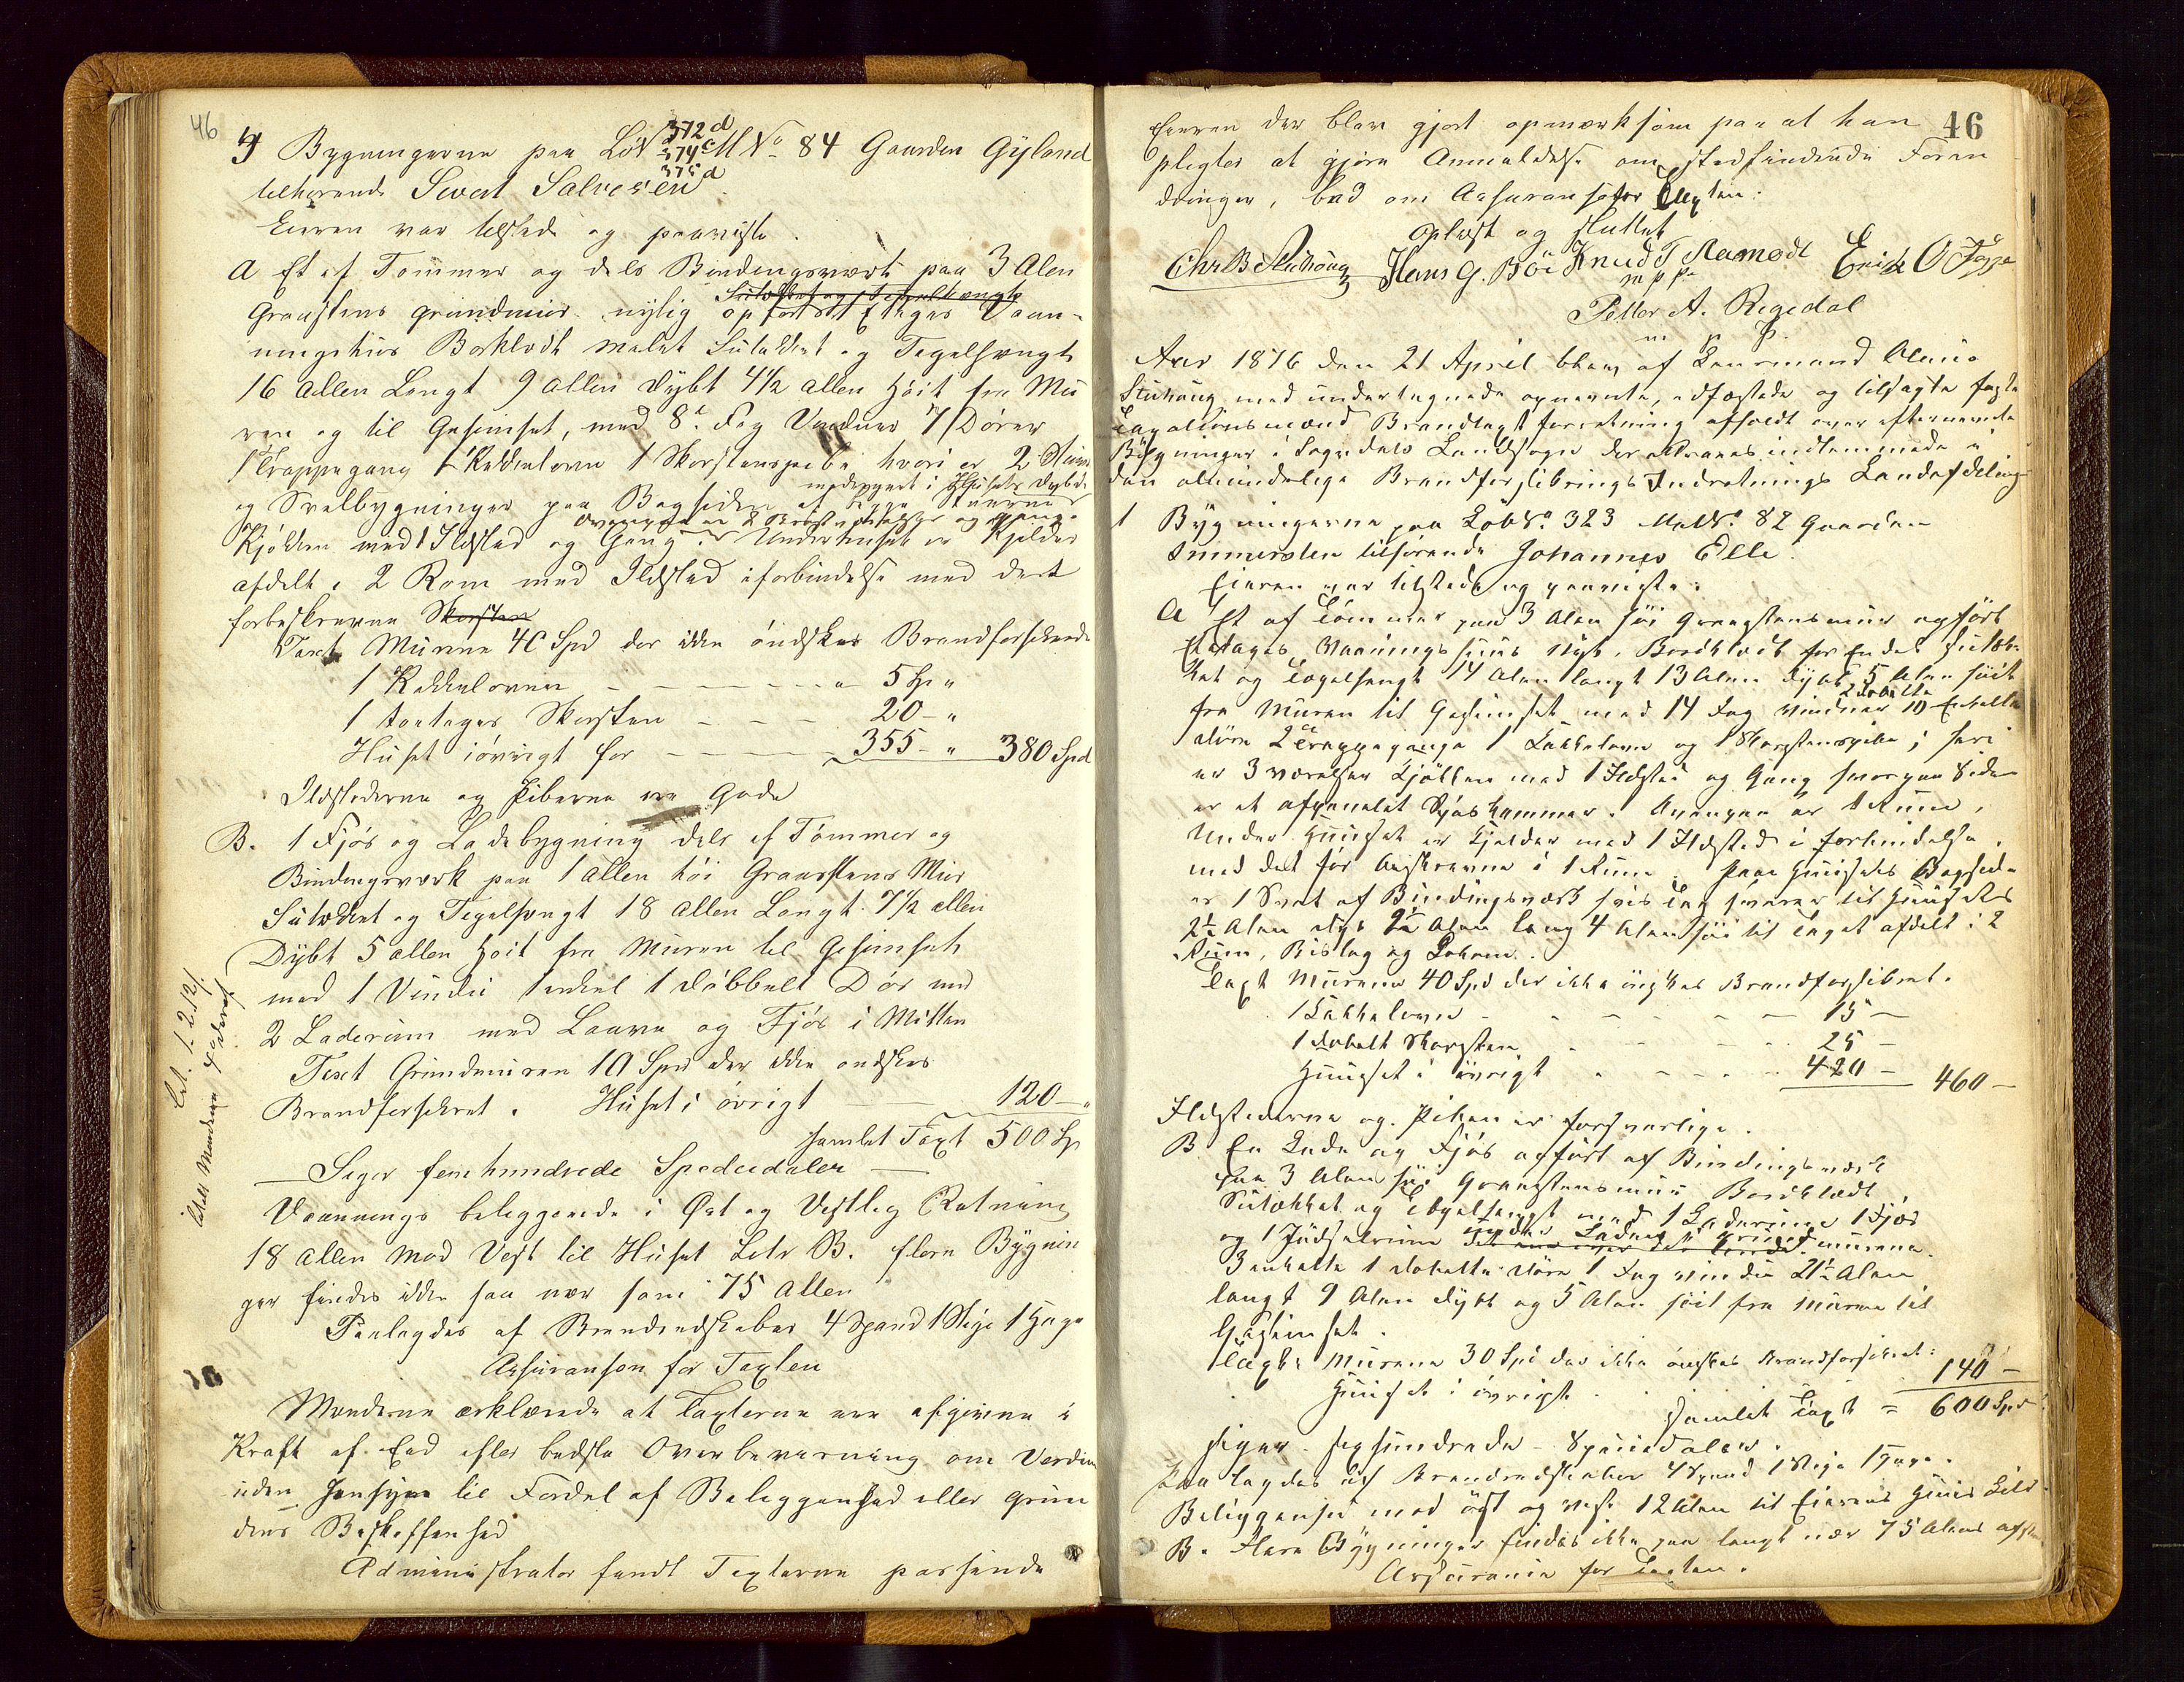 46
4 Bygningerne paa Løb № 372d 374c 375d M № 84 Gaarden Gyland
tilhørende Sivert Salvesen
Eieren var tilstede og paaviste.
A Et af Tømmer og dels Bindingsværk paa 3 Alen
Graastens grundmuur nylig opført Etages Vaan-
ningshus Borklædt malet Sutækket og Tegelhængt
16 Allen Langt 9 allen Dybt 4½ allen høit fra Mu
ren og til Gesimset, med 8 Fag Vinduer 7 Dører
1 Trappegang 1 Kakkelovn 1 Skorstenspibe hvori er 2 Stuer
og Svalbygninger paa Bagsiden
Kjøkken med 1 Ildsted og Gang. Underhuset er Kjelder
afdelt i 2 Rom med Ildsted i forbindelse med det
forbeskrevne Skorsten
Taxt Murene 40 Spd der ikke öndskes Brandforsikrede
1 Kakkelovnen - - - - " 5 Sp "
1 toetages Skorsten - - - 20 - "
Huset iøvrigt for - - - 355 - " 380 Spd
Ildstederne og Piberne ere Gode
B. 1 Fjös og Ladebygning dels af Tømmer og
Bindingsværk paa 1 Allen höi Graastens Mur
Sutækket og Tegelhængt 18 Allen Langt 7½ allen
Dybt 5 allen Höit fra Muren til Gesimset
med 1 Vindu 1 enkel 1 döbbelt Dör med
2 Laderum med Laave og Fjös i Mitten
Taxt Grundmuren 10 Spd der ikke ondskes
Brandforsikret. Huset i övrigt - - 120 - "
Samlet Taxt 500 Sp
Siger femhundrede Speciedaler
Vaannings beliggende i Öst og Vestlig Retning
18 allen mod Vest til Huset Litr B. flere Bygnin
ger findes ikke saa nær som 75 Allen
Paalagdes af Brandredskaber 4 Spand 1 Stige 1 Hage
Assuransen for Taxten
Mændene erklærede at Taxterne ere afgivne i
Kraft af Eed efter bedste Overbevisning om Verdien
uden Hensyn til Fordel af Beliggenhed eller Grun
dens Beskaffenhed
Administrator fandt Taxterne passende
46
Eieren der blev gjort opmærksom paa at han
pligter at gjøre Anmeldelse om stedfindende Foran
dringer, bad om Assuranse for Taxten.
Oplæst og sluttet
Chr B Stuhaug Hans G. Böe Knud T Aamodt Erik O
m p p
Petter A. Regedal
m p p
Aar 1876 den 21 April blev af Lensmand Chris
Stuhaug med undertegnede opnævnte, edfæstede og tilsagte faste
Taxationsmænd Brandtaxtforretning afholdt over efternævnte
Bygninger i Sogndals Landsogn der attraaes indlemmede i
den almindelige Brandforsikrings Indretnings Landafdeling
1 Bygningerne paa LöbN° 323 MatN° 82 Gaarden
tilhörende Johannes Elle.
Eieren var tilstede og paaviste:
A Et af Tömmer paa 3 Alen höi Graastensmuur opfört
Etages Vaaningshuus nyt, Bordklædt for en del Sutæk
ket og Tegelhengt 14 Alen langt 13 Alen dybt 5 Alen höit
fra Muren til Gesimset med 14 Fag Vinduer 2 dobelte 10 Enkelte
döre 2 Trappegange 1 Kakkelovn og 1 Skorstenspibe; hvori
er 3 værelser Kjökken med 1 Ildsted og Gang hvorpaa Siden
er et afpanelet Spiskammer. Ovenpaa er 1 Rum,
Under Huuset er Kjelder med 1 Ildsted i forbindelse
med det för beskrevne i 1 Rum. Paa Huusets Bagside
er 1 Sval af Bindingsværk hvis Tag svarer til Huusets
2½ Alen dyb 9½ Alen lang 4 Alen höi til Taget afdelt i 2
Rum, Bislag og Lokum.
Taxt Murene 40 Spd der ikke önskes Brandforsikret.
1 Kakkelovn - - - - - 15 -
1 dobelt Skorsten - - - 25 -
Huuset i övrigt - - - - 420 - 460 -
Ildstederne og Piben er forsvarlige.
B En Lade og Fjös opfört af Bindingsværk
paa 3 Alen höi Graastensmuur Bordklædt
Sutækket og Tegelhengt med 1 Laderum 1 Fjös
og 1 Födselrum under Laden i Grundmurene.
3 enkelte 1 dobelte döre 1 Fag vindu 21½ Alen
langt 9 Alen dybt og 5 Alen höit fra Murene til
Gesimset.
Taxt: Murene 30 Spd der ikke önskes Brandforsikret:
Huuset i övrigt - - - 140 -
Samlet Taxt = 600 Spd
Siger - sexhundrede - Speciedaler.
Paalagdes af Brandredskaber 4 Spand 1 Stige 1 Hage.
Beliggenhed mod öst og vest 12 Alen til Eierens Huus Litr
B. Flere Bygninger findes ikke paa langt nær 75 Alens afst
Assurance for Taxten.